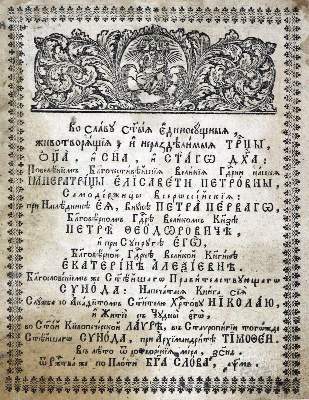 Во славу ст҃ыѧ единосꙋщныѧ,
животворѧщіѧ, и нераздѣлимыѧ Трⷪ҇цы,
Ѻц҃а, и Сн҃а, и Ст҃агѡ Дх҃а:
Повелѣніемъ Благочестивѣйшіѧ Великіѧ Гдⷭ҇рни нашеѧ
ІМПЕРАТРІЦЫ ЕЛІСАВЕТЫ ПЕТРОВНЫ,
Самодержицы Всероссійскіѧ:
при Наслѣдникѣ Еѧ, Внꙋкѣ ПЕТРА ПЕРВАГѠ,
Благовѣрномъ Гдⷭ҇рѣ Великомъ Кнѧзѣ
ПЕТРѢ ѲЕОДѠРОВИЧѢ,
и при Сꙋпрꙋгѣ ЕГѠ,
Благовѣрной Гдⷭ҇рнѣ Великой Кнѧгинѣ
ЕКАТЕРІНѢ АЛЕѮІЕВНѢ.
Благословеніемже Ст҃ѣйшагѡ Правителствꙋющагѡ
СѴНОДА: Напечатасѧ Книга сіѧ
Слꙋжба со Акаѳистомъ Ст҃ителю Хрⷭ҇товꙋ НІКОЛАЮ,
и Житіе съ Чꙋдесы егѡ:
во Ст҃ой Кіевопечерской ЛАѴРѢ, въ Ставропигіи тогожде
Ст҃ѣйшагѡ СѴНОДА, при Архімандрітѣ ТІМОѲЕИ.
Въ лѣто ѿ сотворенїѧ мира,
ѿ Ржⷭ҇тва же по Плоти БГ҃А СЛОВА,